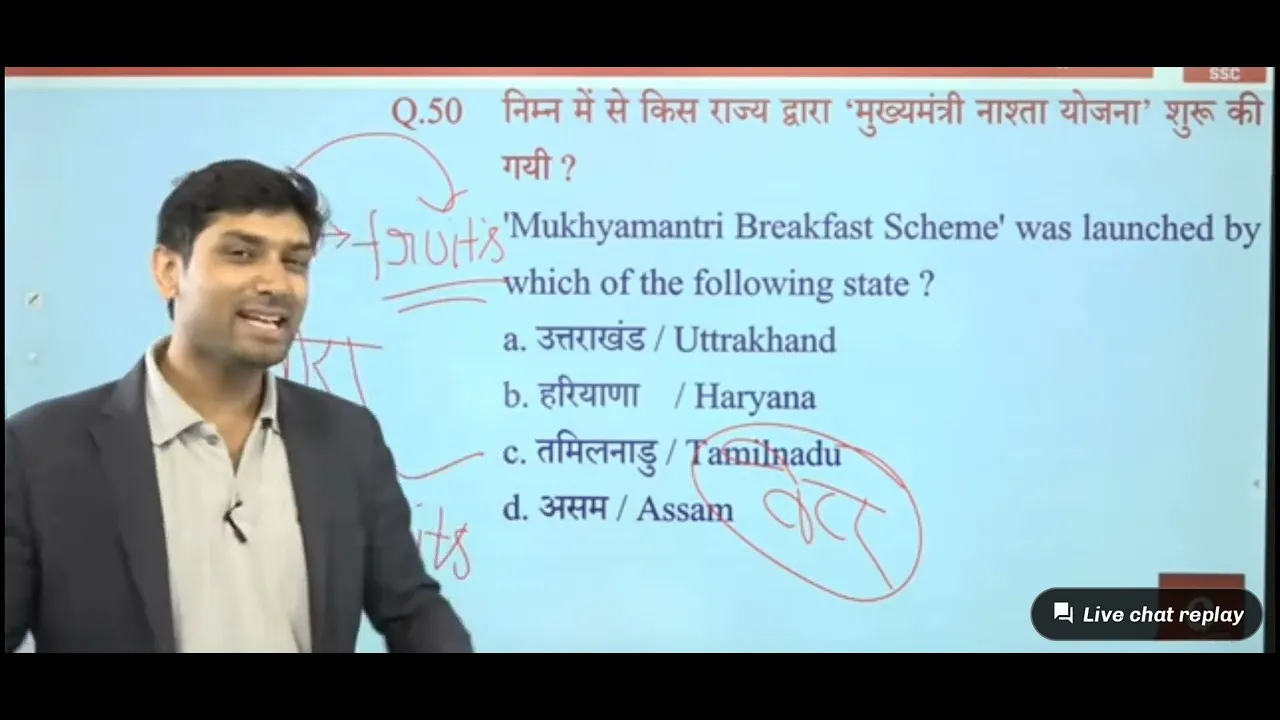 SSC
Q.50 निम्न में से किस राज्य द्वारा ‘मुख्यमंत्री नाश्ता योजना’ शुरू की
गयी ?
fruits
'Mukhyamantri Breakfast Scheme' was launched by
which of the following state ?
a. उत्तराखंड / Uttrakhand
b. हरियाणा / Haryana
c. तमिलनाडु / Tamilnadu
d. असम / Assam
Live chat replay